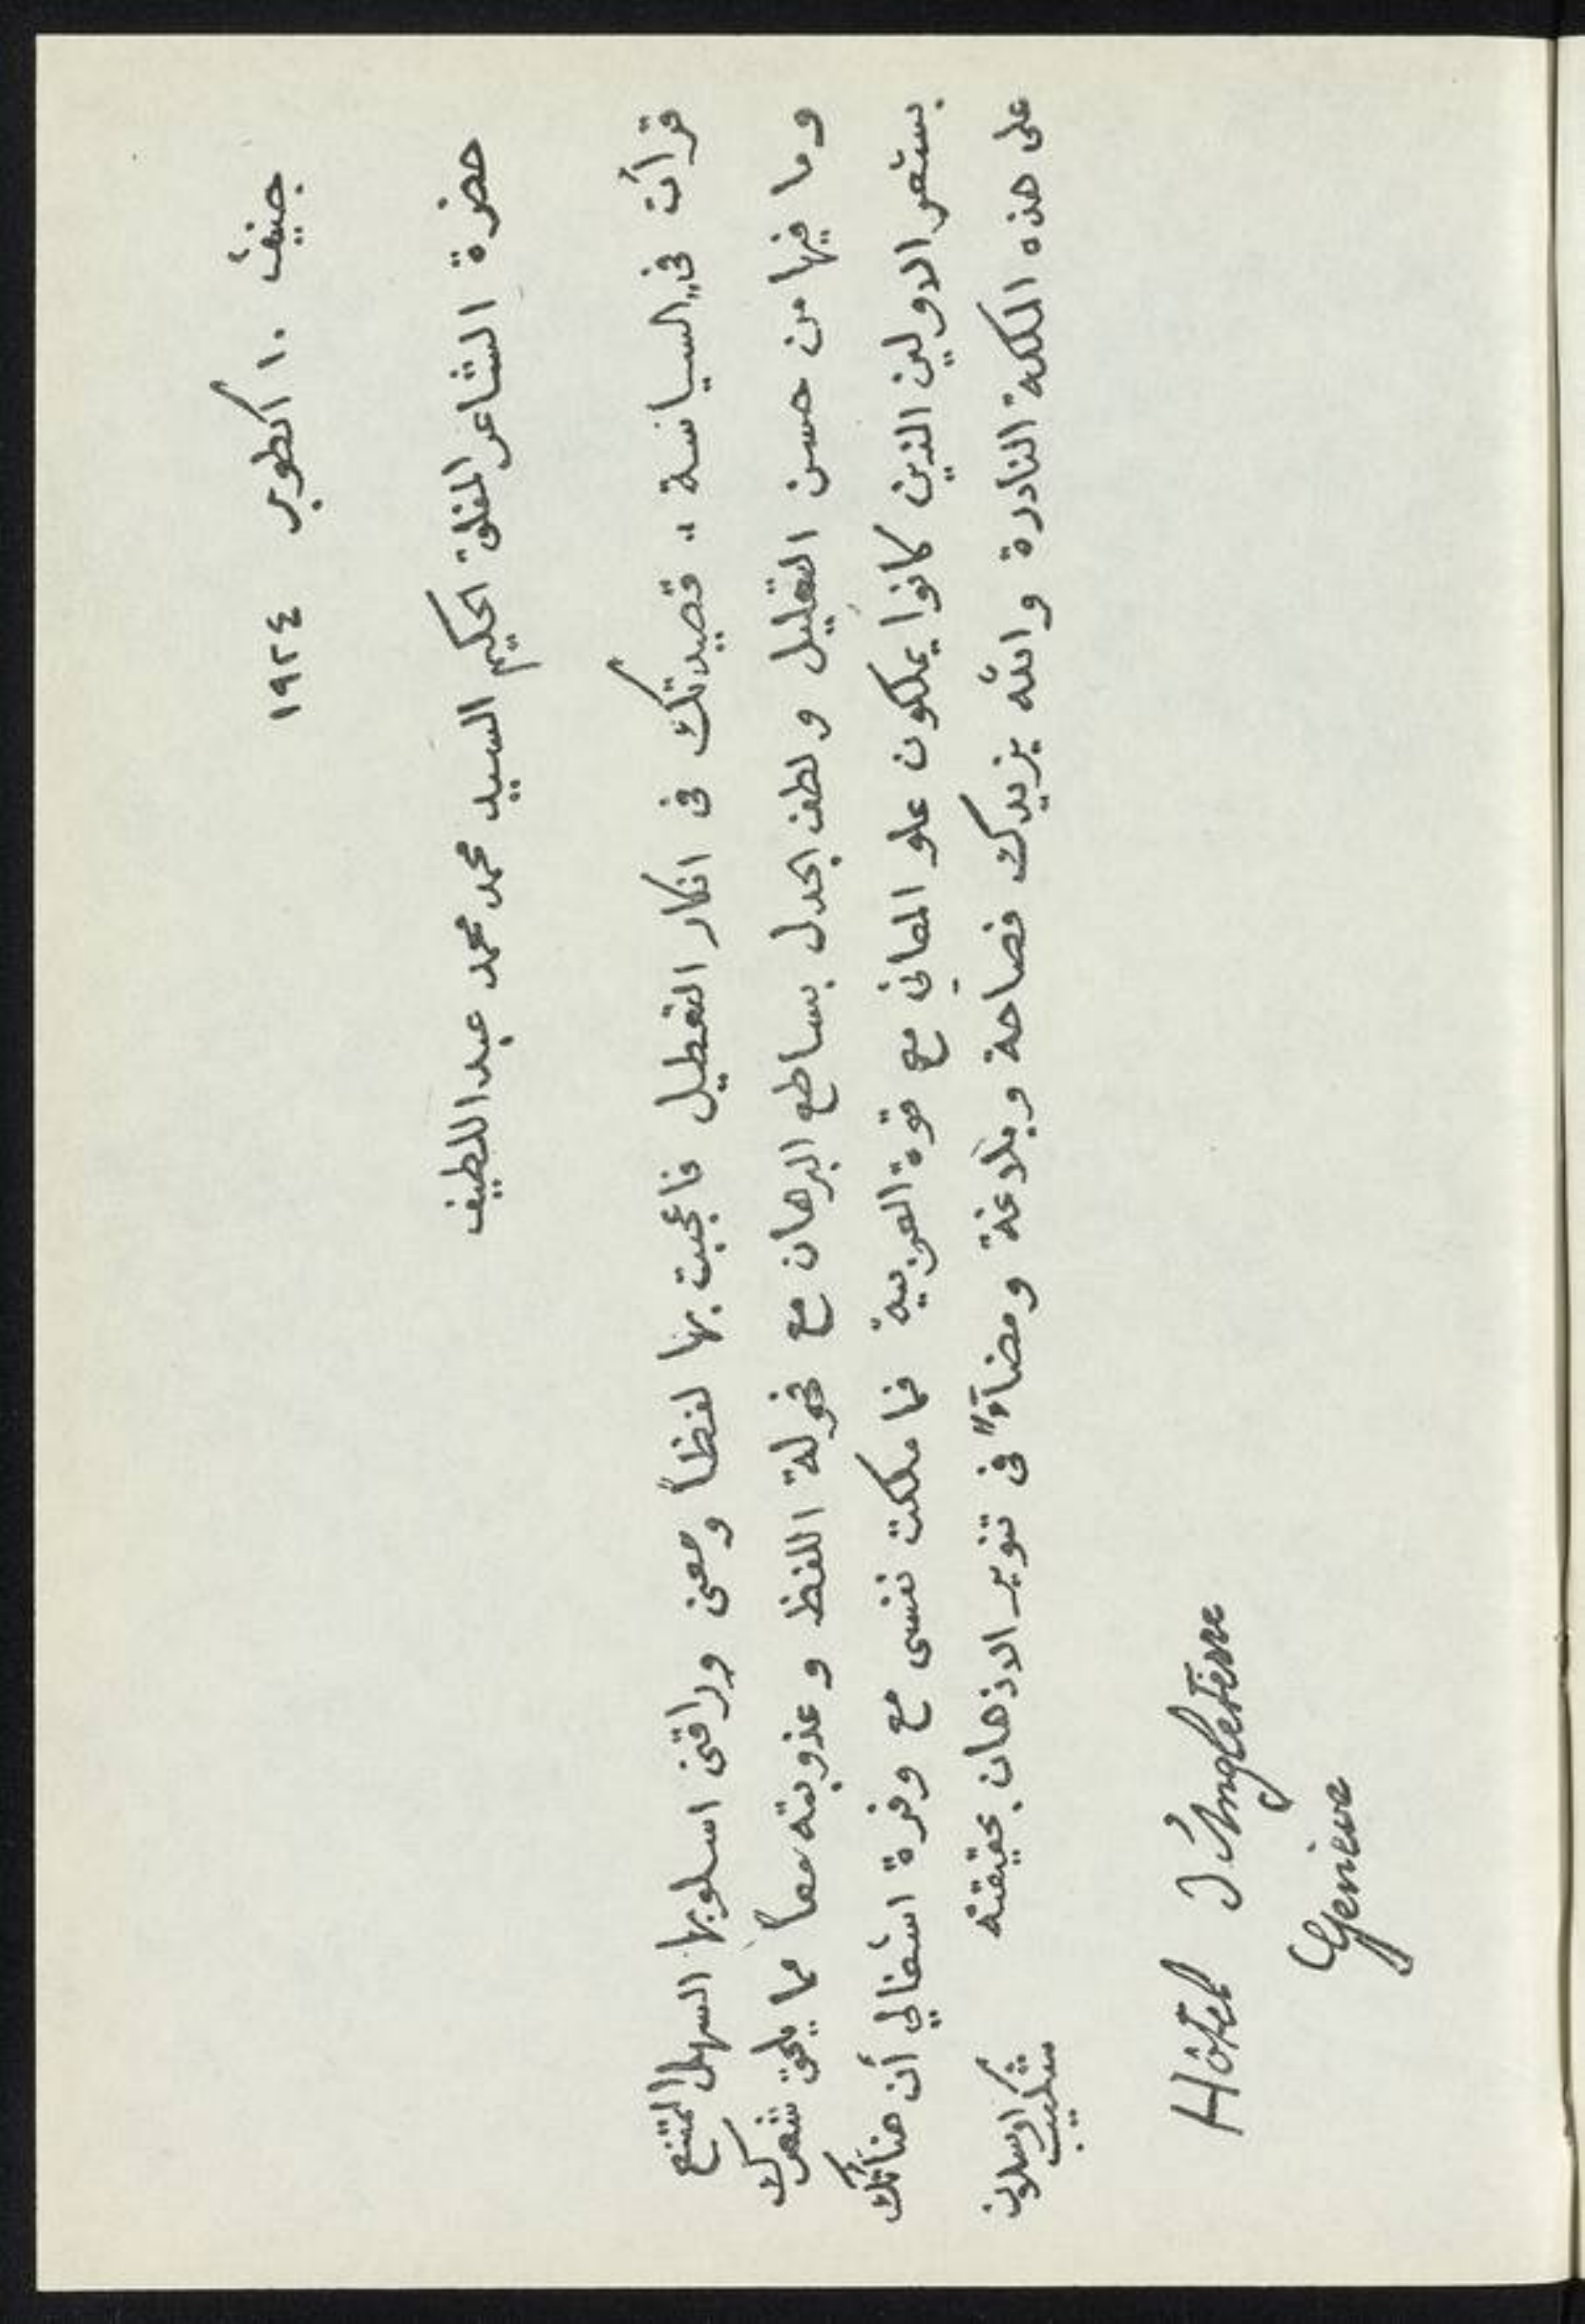 جنيف ١٠ اكطوبر ١٩٢٤
حضرة الشاعر المفلق الحكيم السيد محمد محمد عبد اللطيف
قرأت في "السياسة" قصيدتك فى انكار التعطيل فاعجبت بها لفظاً ومعنى وراقنى اسلوبها السهل الممتنع
وما فيها من حسن التعليل ولطف الجدل بساطع البرهان مع فحولة اللفظ وعذوبته معاً مما يلحق شعرك
بشعر الاولين الذين كانوا يملكون علو المعاني مع قوة العربية فما ملكت نفسى مع وفرة اشغالي أن هنأتك
على هذه الملكة النادرة والله يزيدك فصاحة وبلاغة ومضآءً فى تنوير الاذهان بحقيقته
شكيب ارسلان
Hôtel d'Angleterre
Genève